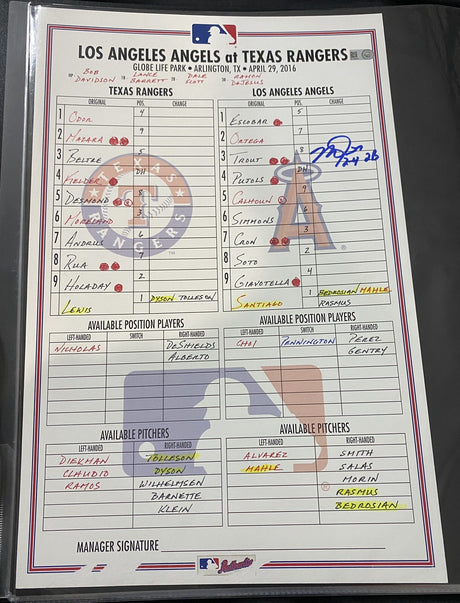 LOS ANGELES ANGELS at TEXAS RANGERS
GLOBE LIFE PARK • ARLINGTON, TX • APRIL 29, 2016
HP BOB DAVIDSON 1B LANCE BARRETT 2B DALE SCOTT 3B RAMON DEJESUS
TEXAS RANGERS
ORIGINAL POS. CHANGE
1 ODOR 4
2 MAZARA 9
3 BELTRE 5
4 FIELDER DH
5 DESMOND 8
6 MORELAND 3
7 ANDRUS 6
8 RUA 7
9 HOLADAY 2
LEWIS 1 DYSON TOLLESON
TEXAS RANGERS
LOS ANGELES ANGELS
ORIGINAL POS. CHANGE
1 ESCOBAR 5
2 ORTEGA 7
3 TROUT 8
4 PUJOLS DH
5 CALHOUN 9
6 SIMMONS 6
7 CRON 3
8 SOTO 2
9 GIAVOTELLA 4
SANTIAGO 1 BEDROSIAN MAHLE
RASMUS
A
AVAILABLE POSITION PLAYERS
LEFT-HANDED SWITCH RIGHT-HANDED
NICHOLAS DESHIELDS
ALBERTO
AVAILABLE POSITION PLAYERS
LEFT-HANDED SWITCH RIGHT-HANDED
CHOI PENNINGTON PEREZ
GENTRY
AVAILABLE PITCHERS
LEFT-HANDED RIGHT-HANDED
DIEKMAN TOLLESON
CLAUDIO DYSON
RAMOS WILHELMSEN
BARNETTE
KLEIN
AVAILABLE PITCHERS
LEFT-HANDED RIGHT-HANDED
ALVAREZ SMITH
MAHLE SALAS
MORIN
RASMUS
BEDROSIAN
MANAGER SIGNATURE
Authentic